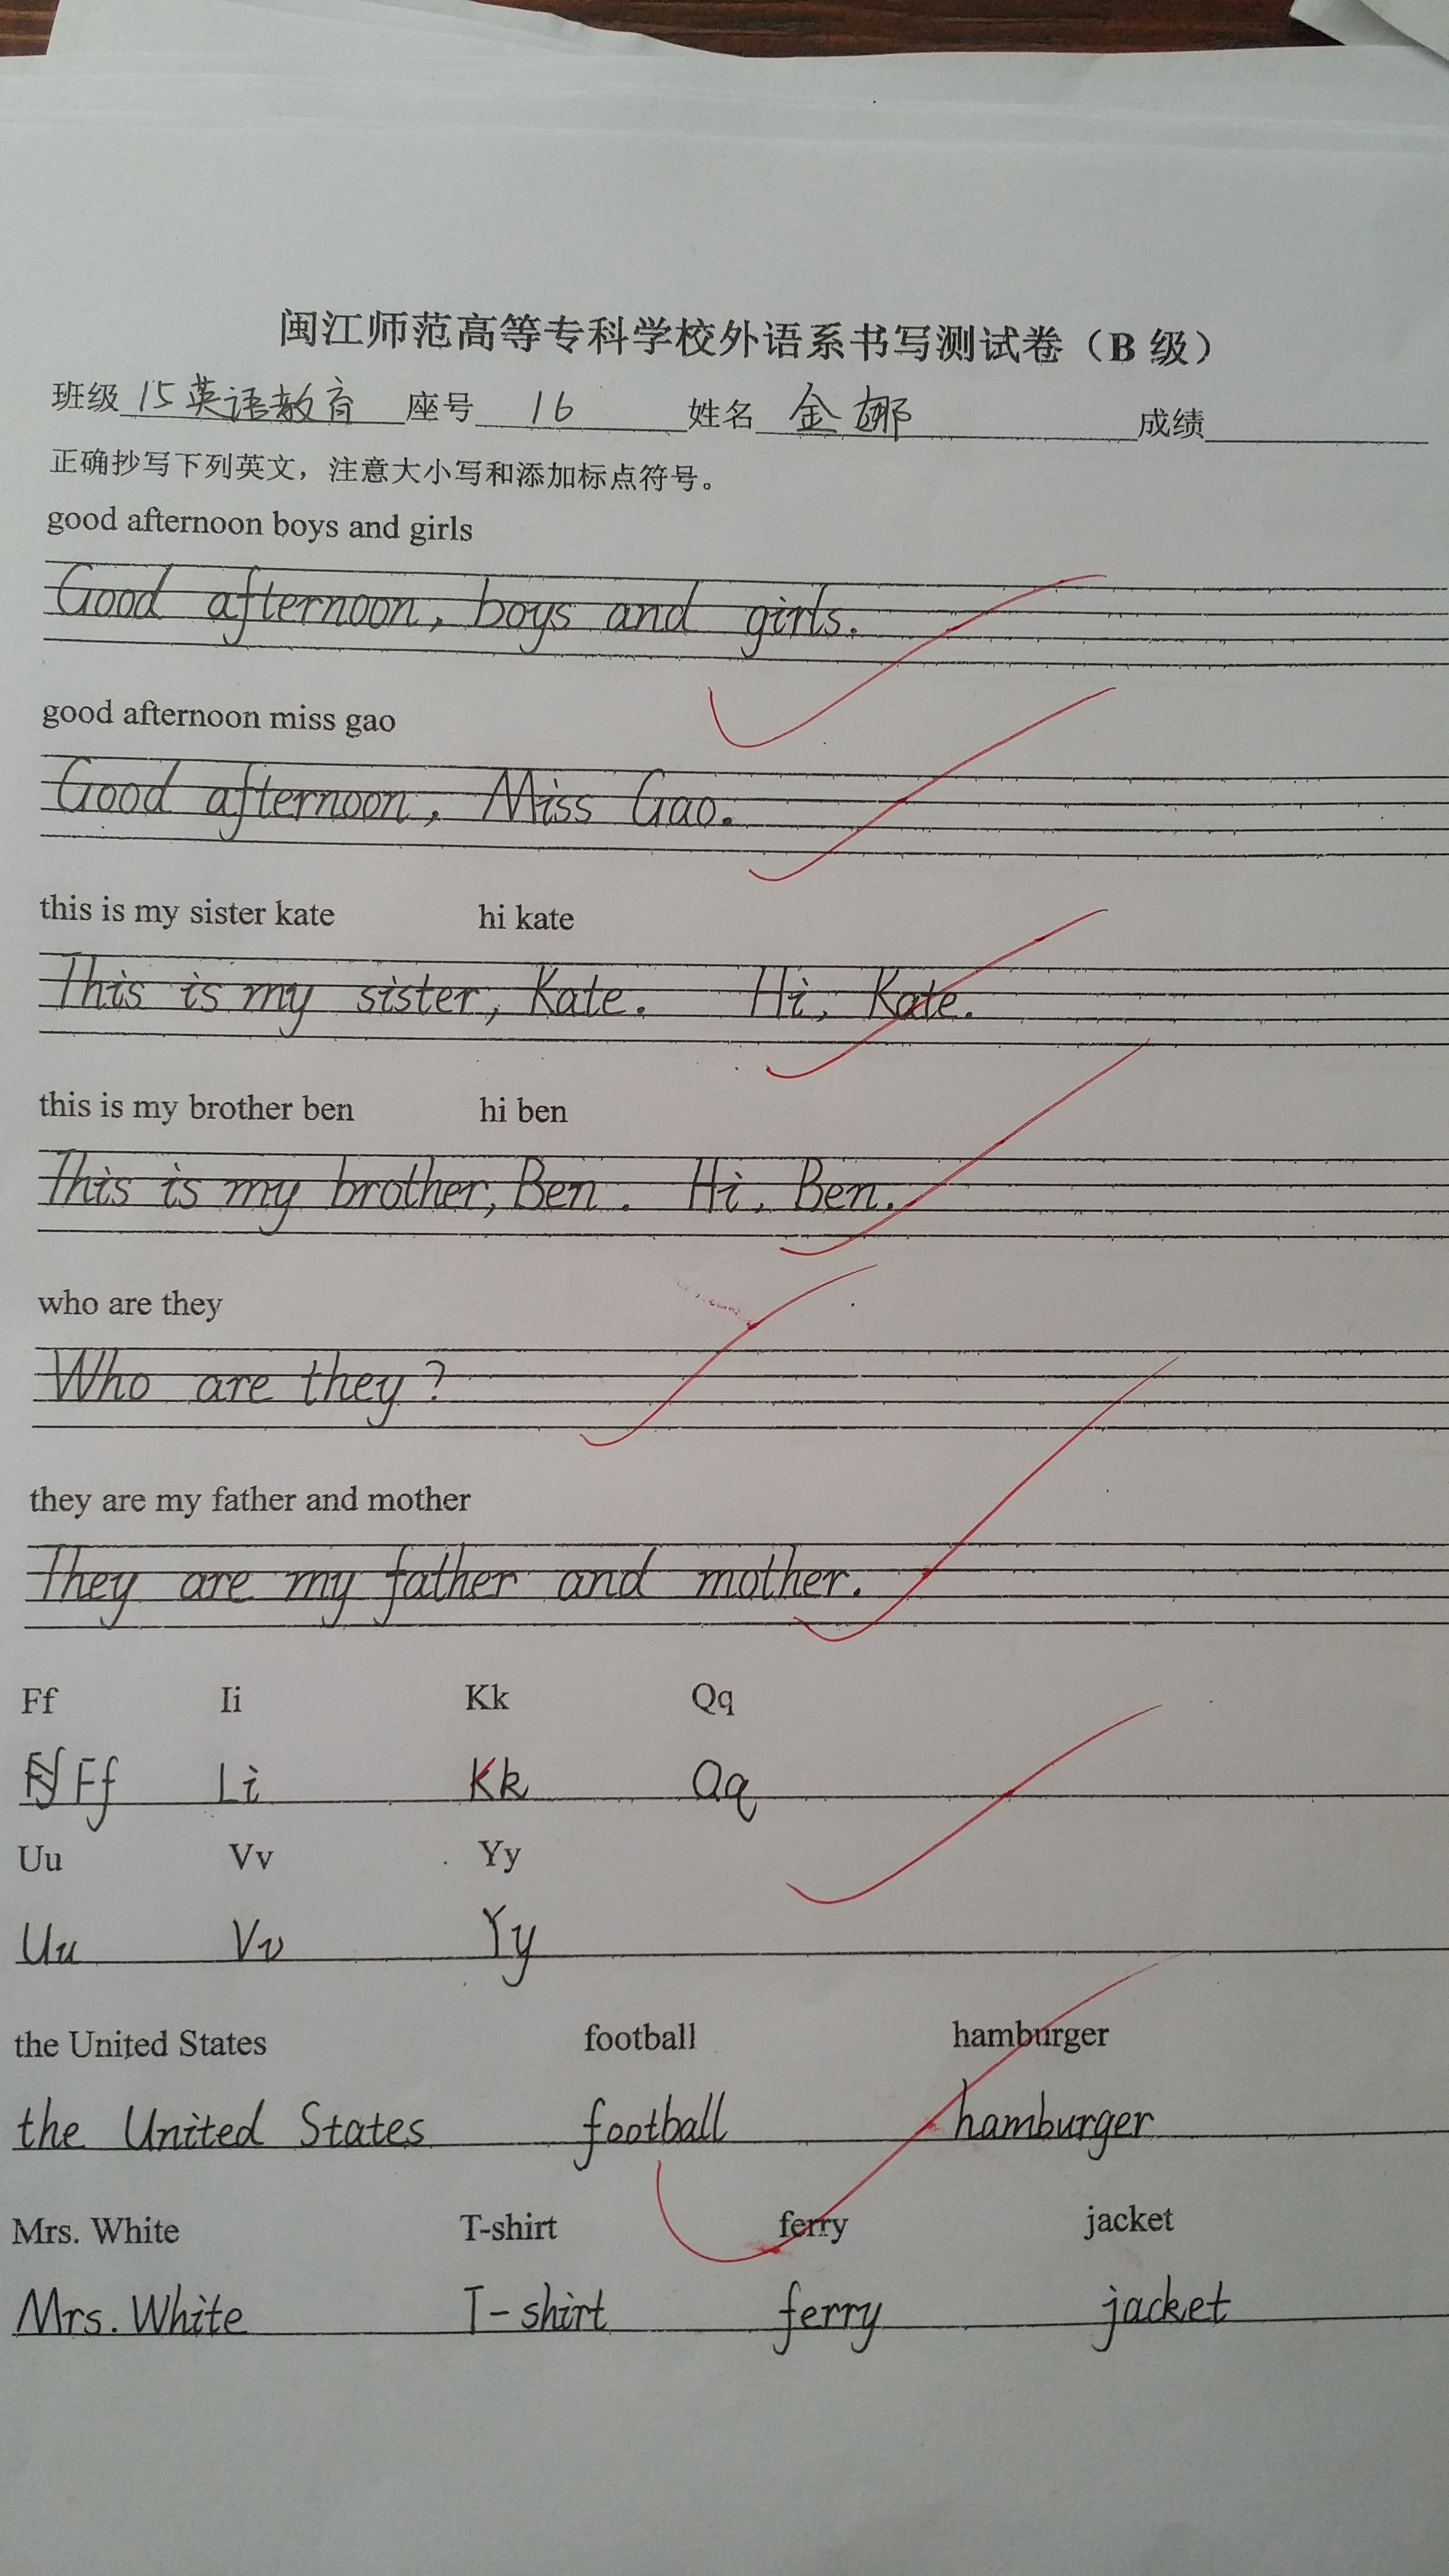 闽江师范高等专科学校外语系书写测试卷（B 级）
班级 15英语教育 座号 16 姓名 金娜 成绩
正确抄写下列英文，注意大小写和添加标点符号。
good afternoon boys and girls
Good afternoon, boys and girls.
good afternoon miss gao
Good afternoon, Miss Gao.
this is my sister kate hi kate
This is my sister, Kate. Hi, Kate.
this is my brother ben hi ben
This is my brother, Ben. Hi, Ben.
who are they
Who are they?
they are my father and mother
They are my father and mother.
Ff Ii Kk Qq
Ff Li Kk Qq
Uu Vv Yy
Uu Vv Yy
the United States football hamburger
the United States football hamburger
Mrs. White T-shirt ferry jacket
Mrs. White T-shirt ferry jacket